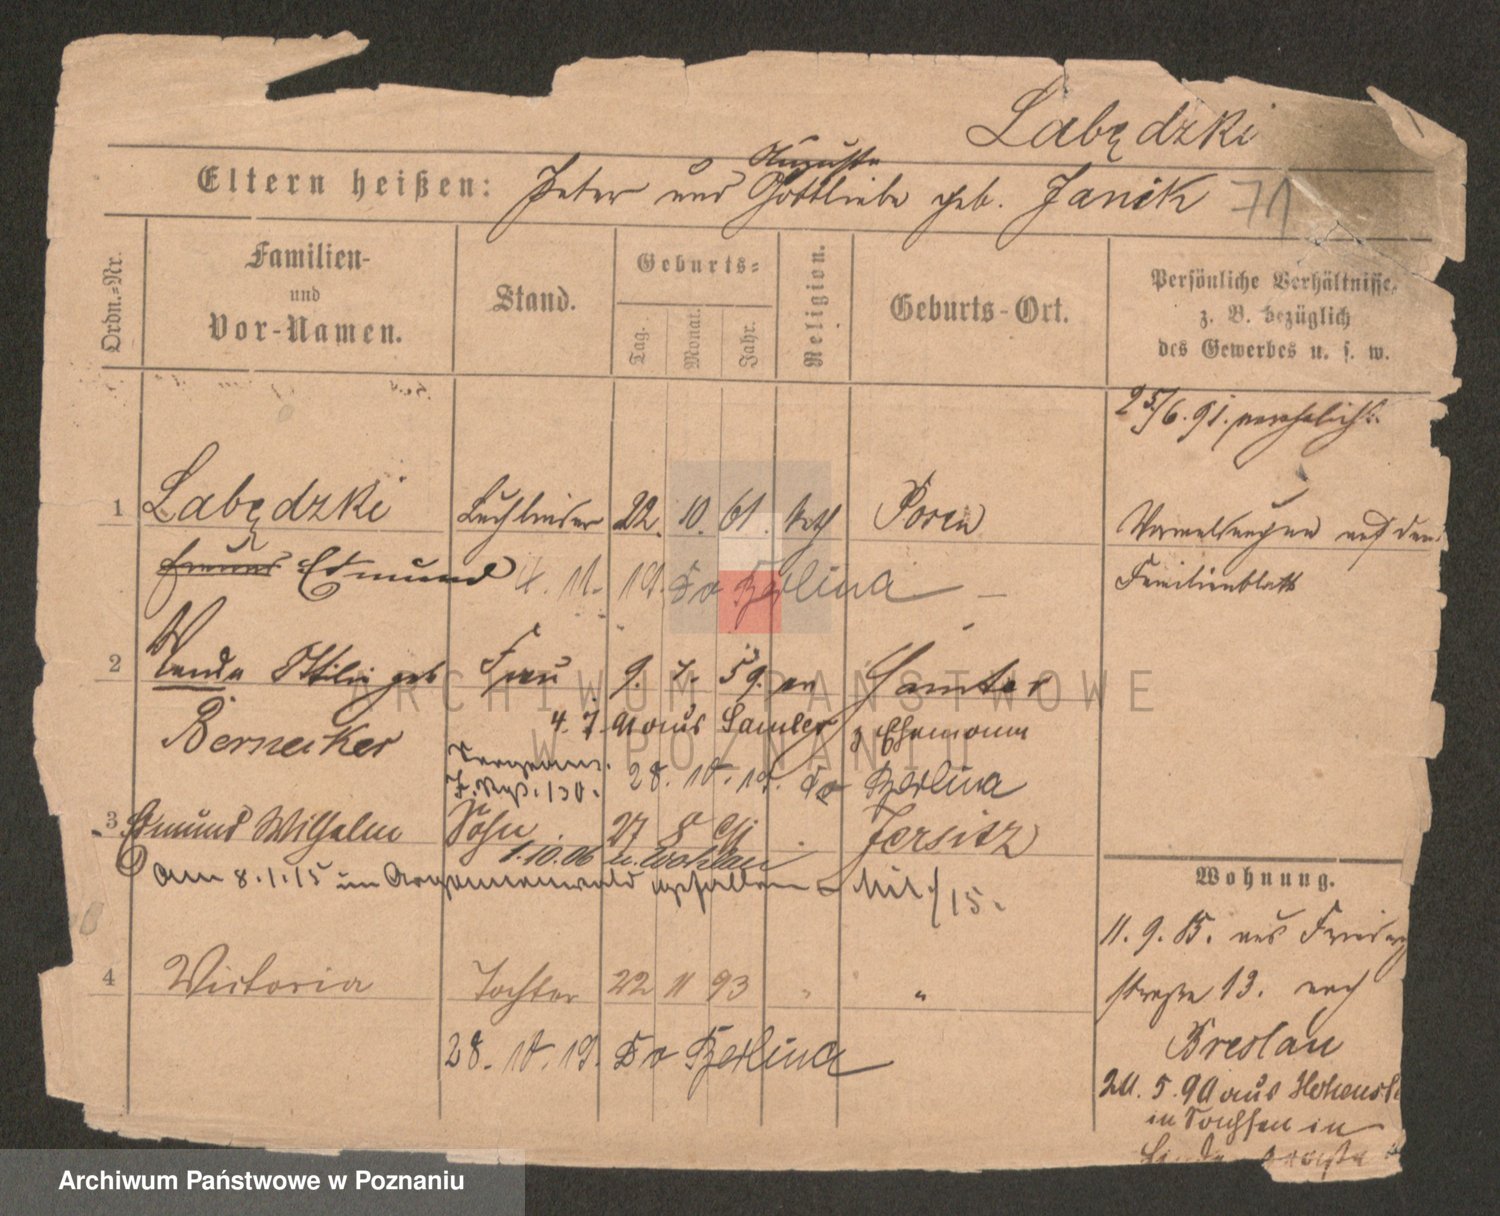 Labędzki
Auguste
Eltern heißen: Peter und Gottliebe geb. Janik 71
Ordn.-Nr.
Familien-
und
Vor-Namen.
Stand.
Geburts-
Tag.
Monat.
Jahr.
Religion.
Geburts-Ort.
Persönliche Verhältnisse,
z. B. bezüglich
des Gewerbes u. s. w.
25/6. 91. verehelicht
1 Labędzki Buchbinder 22. 10. 61. kath Posen
Edmund
11. 19. Do Berlina
Vermerkungen auf dem
Familienblatt
2 Wanda Ottilie geb Frau 9. 7. 59. ev Samter
Bernecker
4. 7. aus Samter z Ehemann
28. 10. 19. Do Berlina
3 Edmund Wilhelm Sohn 27 8 91 Jersitz
1.10.06 n. Wohlau
Am 8.1.15 im Argonnenwald gefallen Mil./15.
4 Victoria Tochter 22 11 93 " "
28. 10. 19. Do Berlina
Wohnung.
11. 9. 85. aus
straße 13. nach
Breslau
20. 5. 90 aus
in Sachsen in
ARCHIWUM PAŃSTWOWE
W POZNANIU
Archiwum Państwowe w Poznaniu